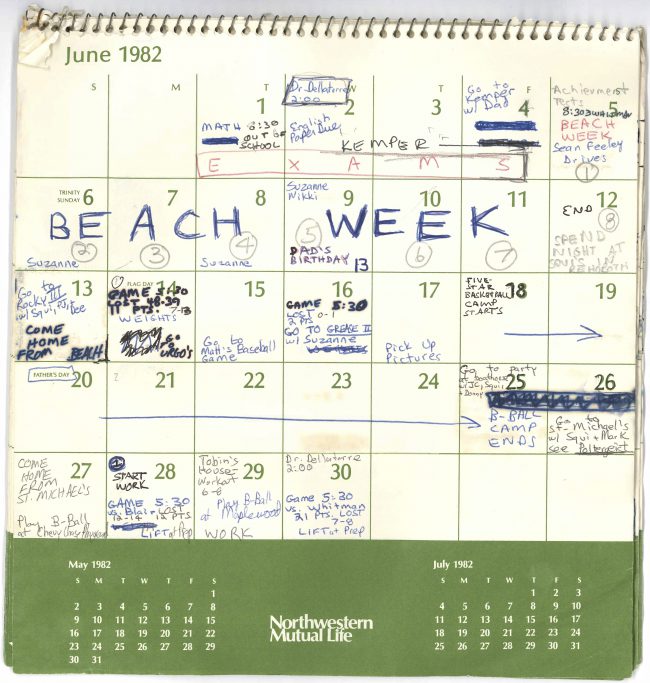 June 1982
S M T W T F S
Dr. Dellatorre
2:00
1
MATH 8:30
OUT OF
SCHOOL
2
English
Paper Due
3
KEMPER
Go to
Kemper
w/ Dad
4
Achievment
Tests
5
8:30
BEACH
WEEK
Sean Feeley
Drives
1
E X A M S
TRINITY
SUNDAY
6
7
8
Suzanne
Nikki
9
10
11
12
BEACH WEEK
END
2
3
4
5
6
7
8
Suzanne
Suzanne
DAD'S
BIRTHDAY
13
SPEND
NIGHT AT
SQUI'S IN
REHOBOTH
13
Go to
Rocky III
w/ Squi, PJ,
COME
HOME
FROM BEACH
FLAG DAY
GAME 5:30
LOST 48-39
11 PTS. 7-13
WEIGHTS
Go
to
URSO'S
15
Go to
Matt's Baseball
Game
16
GAME 5:30
LOST 0-1
2 PTS.
GO TO GREASE II
w/ Suzanne
17
Pick Up
Pictures
FIVE-
STAR
BASKETBALL
CAMP
STARTS
18
19
FATHER'S DAY
20
21
22
23
24
Go to party
at boathouse
w/ JC, Squi,
+ Donny
25
B-BALL
CAMP
ENDS
26
Go to
St. Michael's
w/ Squi + Mark
see Poltergeist
27
COME
HOME
FROM
ST. MICHAEL'S
Play B-Ball
at Chevy Chase
28
START
WORK
GAME 5:30
vs. Blair LOST
12-14 12 PTS
LIFT at Prep
29
Tobin's
House-
Workout
6-8
Play B-Ball
at Maplewood
WORK
Dr. Dellatorre
2:00
30
Game 5:30
vs. Whitman
21 PTS. LOST
7-8
LIFT at Prep
May 1982
S M T W T F S
1
2 3 4 5 6 7 8
9 10 11 12 13 14 15
16 17 18 19 20 21 22
23 24 25 26 27 28 29
30 31
Northwestern
Mutual Life
July 1982
S M T W T F S
1 2 3
4 5 6 7 8 9 10
11 12 13 14 15 16 17
18 19 20 21 22 23 24
25 26 27 28 29 30 31